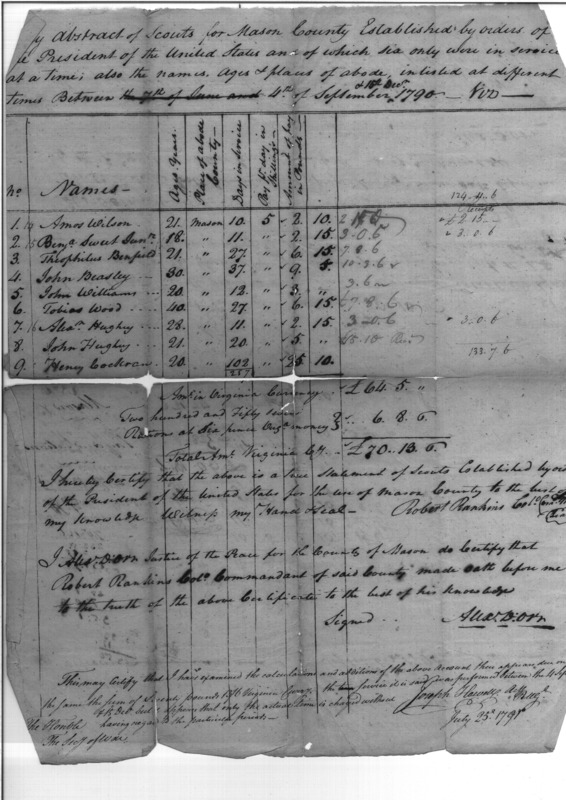 Abstract of Scouts for Mason County Established by orders of
President of the United States and of which six only were in service
at a time; also the names, Ages & places of abode, inlisted at different
times Between the 7th of June and 4th of September & 1790 — Viz —
No Names — Ages Years. Place of abode County — Days in Service Pay P day in Shillings Amount of pay in Pounds
124..4..6
1. Amos Wilson 21. Mason 10. 5 2. 10. 2 15 0 2..15
2. Benja Sweet Junr 18. " 11. " 2. 15 3..0..6 3..0..6
3. Theophilus Benfield 21. " 27. " 6. 15 7..8..6
4. John Beasley 30. " 37. " 9. 5. 10..3..6
5. John Williams 20. " 12. " 3. " 3..6
6. Tobias Wood 40. " 27. " 6. 15 7..8..6
7. Alexr Hughey 28. " 11. " 2. 15 3..0..6 3..0..6
8. John Hughey 21. " 20. " 5. "
133..7..6
9. Henry Cockran 20. " 102 " 25 10.
257
Amt. in Virginia Currency £64. 5. "
Two hundred and Fifty seven
Rations at Six pence Virga money 6. 8. 6
Total Amt Virginia Cy. £70..13..6
I hereby Certify that the above is a true Statement of Scouts Established by
of the President of the United States for the use of Mason County to the best of
my Knowledge Witness my Hand & Seal — Robert Rankins Colo
I Alexr D. Orn Justice of the Peace for the County of Mason do Certify that
Robert Rankins Colo Commandant of said County made oath before me
to the truth of the above Certificate to the best of his Knowledge
Signed Alexr D. Orn
This may Certify that I have examined the calculations and additions of the above account there appears due on
the same the sum of Seventy pounds 13/6 Virginia Currency the service it is said was performed between the 4 Sept
& 18 Decr appears that only the actual time is charged without
having regard to the particular periods — Joseph Howell
The Honble July 25th 1791
The Secy of War